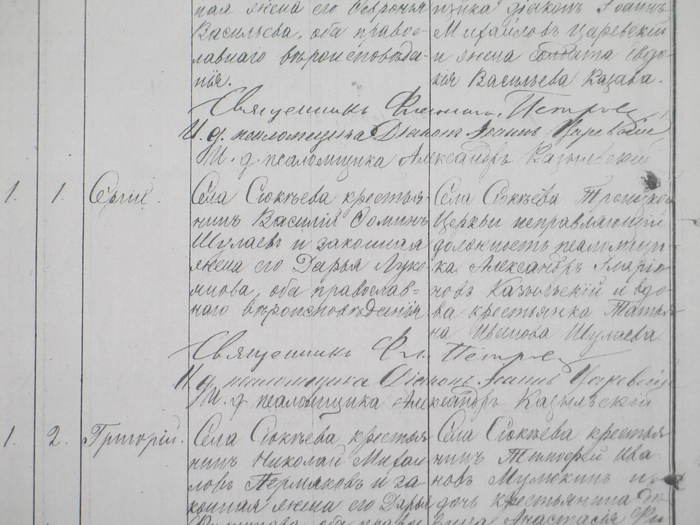 ная жена его Февронья
Васильева, оба правос-
лавнаго вѣроисповѣда-
нія.
щика діаконъ Іоаннъ
Михайловъ Царевскій
и жена солдата Евдо-
кія Васильева Казава.
Священникъ Петровъ
И. д. псаломщика Діаконъ Іоаннъ Царевскій
И. д. псаломщика Александръ Казыльскій
1. 1. Сергій.
Села Сюкѣева крестья-
нинъ Василій Доминъ
Шулаевъ и законная
жена его Дарья Луко-
янова, оба православ-
наго вѣроисповѣданія
Села Сюкѣева Троицкой
Церкви исправляющій
должность псаломщи-
ка Александръ Иларіо-
новъ Казыльскій и вдо-
ва крестьянка Татья-
на Иванова Шулаева
Священникъ Петровъ
И. д. псаломщика Діаконъ Іоаннъ Царевскій
И. д. псаломщика Александръ Казыльскій
1. 2. Григорій.
Села Сюкѣева крестья-
нинъ Николай Михаи-
ловъ Пермяковъ и за-
конная жена его Дарья
Села Сюкѣева крестья-
нинъ Тимофей Ива-
новъ Мулюкинъ и
дочь крестьянина
Анастасія